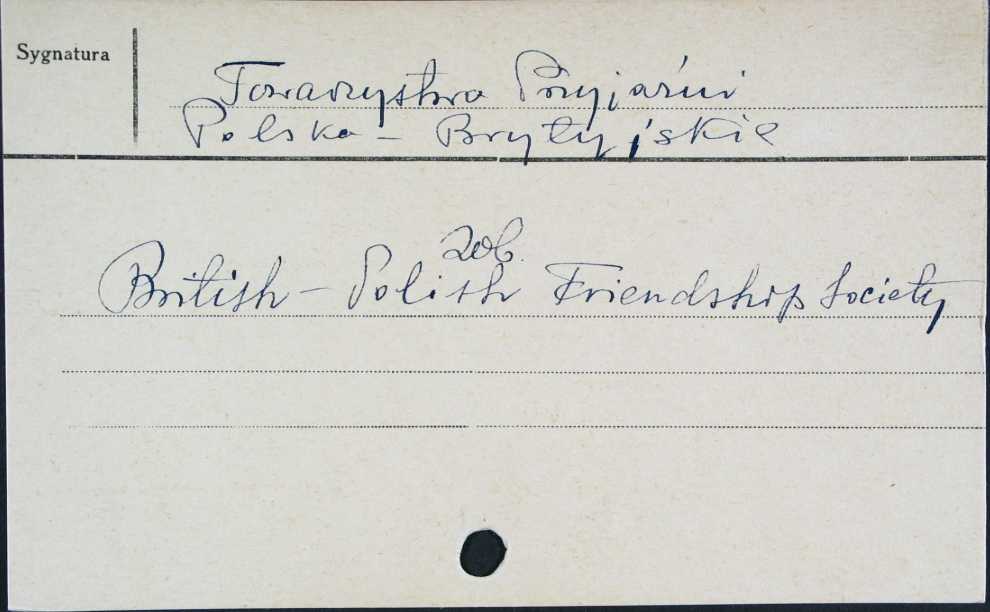 Sygnatura
Towarzystwo Przyjaźni
Polsko - Brytyjskie
zob.
British - Polish Friendship Society